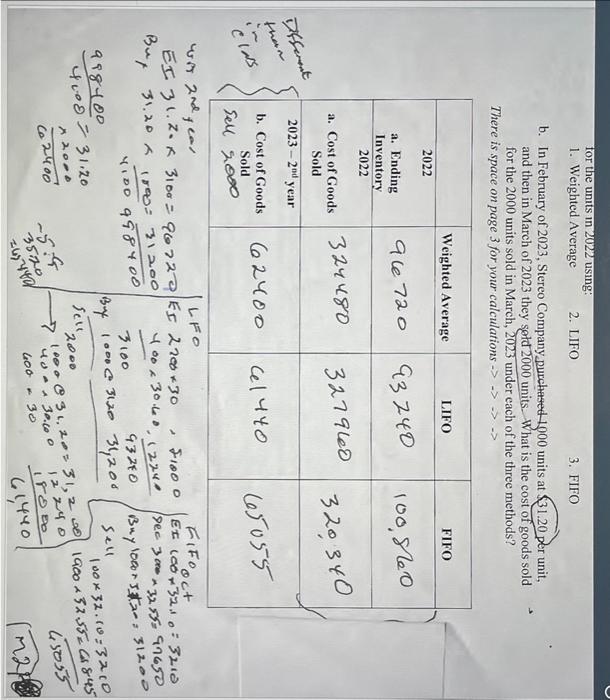 for the units in 2022 using:
1. Weighted Average 2. LIFO 3. FIFO
b. In February of 2023, Stereo Company purchased 1000 units at $31.20 per unit,
and then in March of 2023 they sold 2000 units. What is the cost of goods sold
for the 2000 units sold in March, 2023 under each of the three methods?
There is space on page 3 for your calculations -> -> -> ->
Weighted Average LIFO FIFO
2022
a. Ending Inventory 2022 96720 93240 100,860
a. Cost of Goods Sold 324480 327960 320,340
2023 – 2nd year
b. Cost of Goods Sold 62400 61440 65055
Sell 2000
Different
than
in
class
WA 2nd year
EI 31.20 x 3100 = 96720
Buy 31.20 x 1000 = 31200
4100 998400
998400
4100 = 31.20
x 2000
62400
LIFO
EI 2700 x 30 81000
400 x 30.60 12240
3100 93240
Buy 1000 @ 3120 31,200
Sell
2000
1000 @ 31.20 = 31,200
400 x 30.60 12240
600 x 30 18000
61,440
FIFO
EI 100 x 32.10 = 3210
Dec 3000 x 32.55 = 97650
Buy 1000 x 31.20 = 31200
Sell
100 x 32.10 = 3210
1900 x 32.55 = 61845
65055